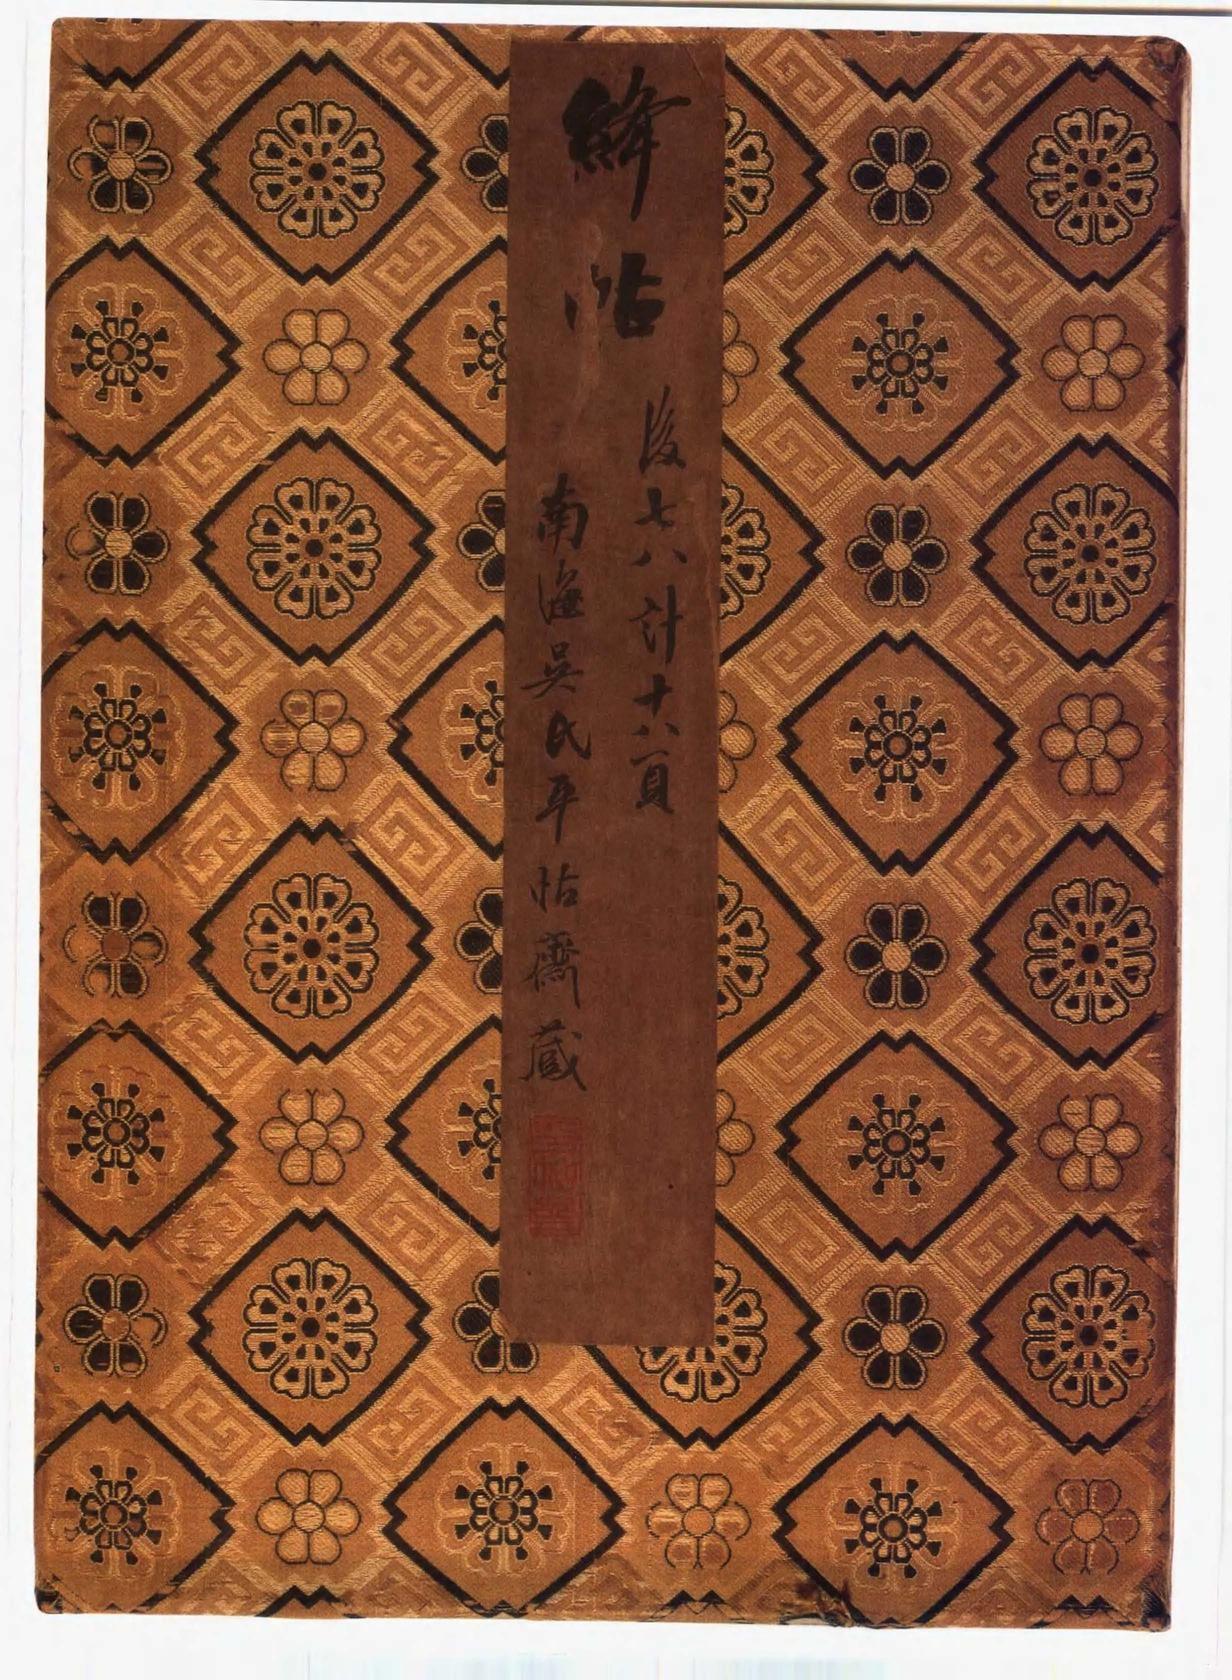 絳帖
後七八計十八頁
南海吳氏平帖齋藏